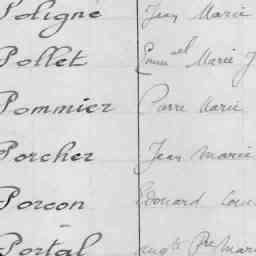 Poligné Jean Marie
Pollet Emmel Marie J
Pommier Pierre Marie
Porcher Jean Marie
Porcon Edouard Loui
Portal Augte Pre Mari